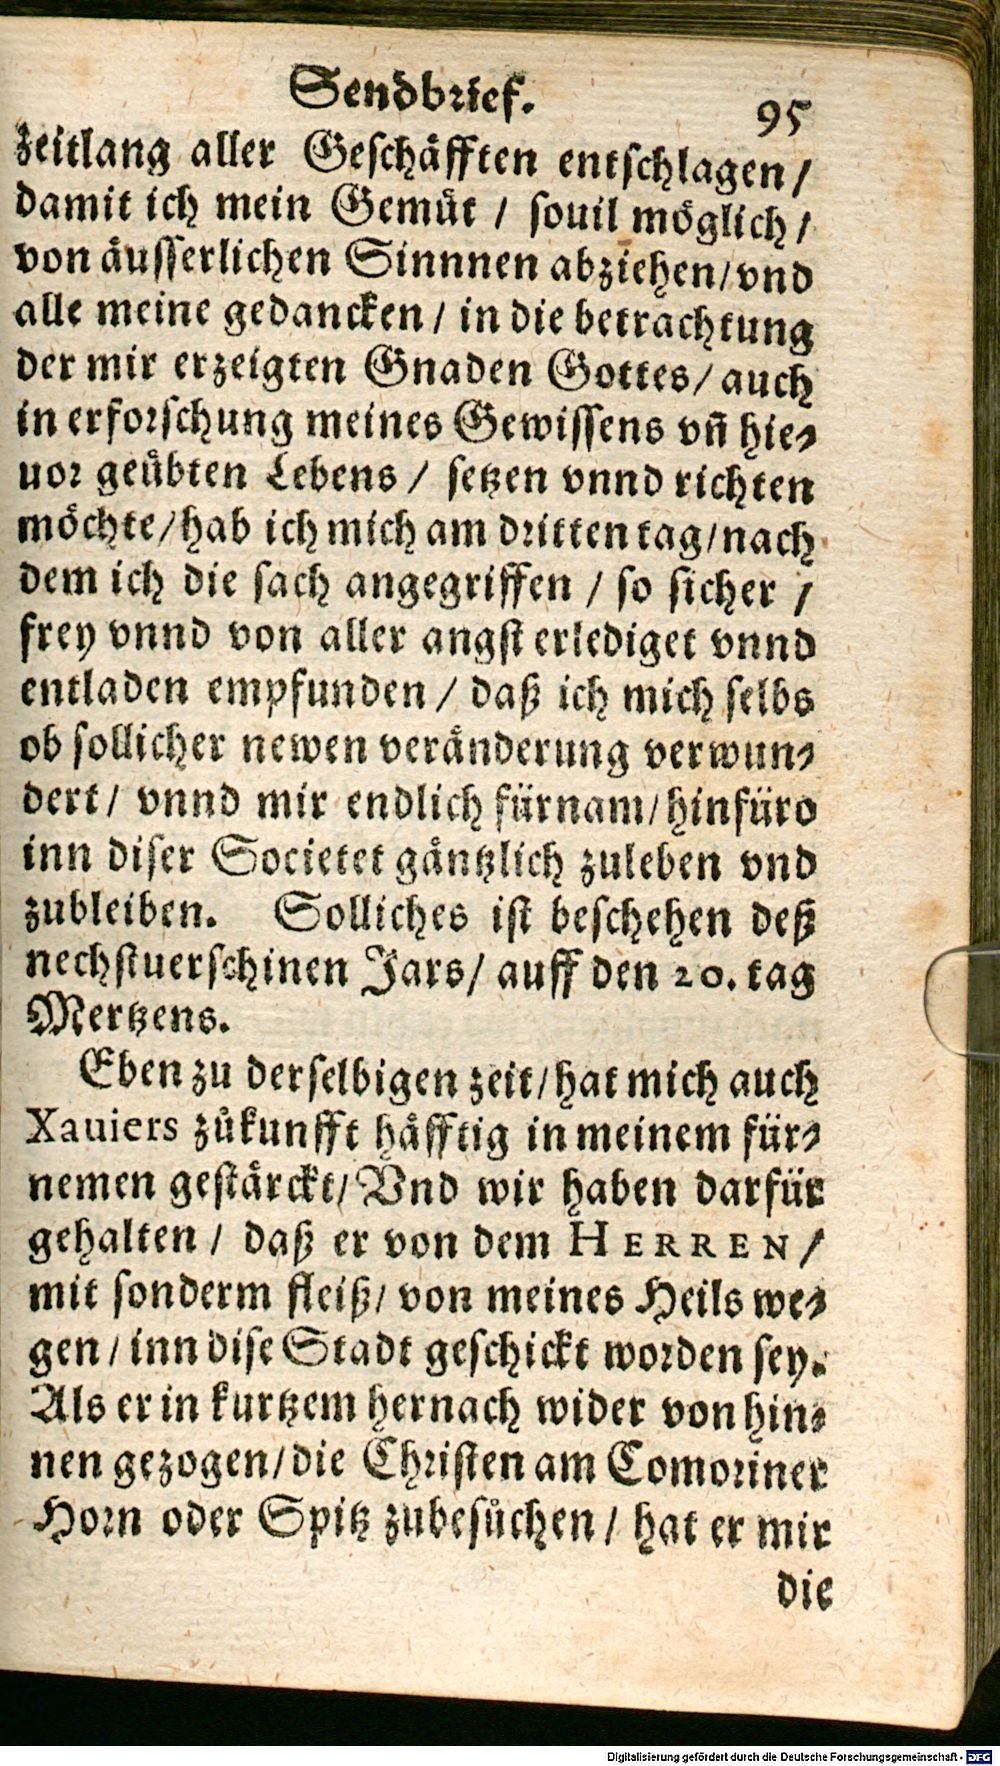 Sendbrief. 95
zeitlang aller Geschäfften entschlagen /
damit ich mein Gemüt / souil möglich /
von äusserlichen Sinnnen abziehen / vnd
alle meine gedancken / in die betrachtung
der mir erzeigten Gnaden Gottes / auch
in erforschung meines Gewissens vn̄ hie⸗
uor geübten Lebens / setzen vnnd richten
möchte / hab ich mich am dritten tag / nach
dem ich die sach angegriffen / so sicher /
frey vnnd von aller angst erlediget vnnd
entladen empfunden / daß ich mich selbs
ob sollicher newen veränderung verwun⸗
dert / vnnd mir endlich fürnam / hinfüro
inn diser Societet gäntzlich zuleben vnd
zubleiben. Solliches ist beschehen deß
nechstuerschinen Jars / auff den 20. tag
Mertzens.
Eben zu derselbigen zeit / hat mich auch
Xauiers zůkunfft häfftig in meinem für⸗
nemen gestärckt / Vnd wir haben darfür
gehalten / daß er von dem HERREN /
mit sonderm fleiß / von meines Heils we⸗
gen / inn dise Stadt geschickt worden sey.
Als er in kurtzem hernach wider von hin⸗
nen gezogen / die Christen am Comoriner
Horn oder Spitz zubesůchen / hat er mir
die
Digitalisierung gefördert durch die Deutsche Forschungsgemeinschaft - DFG